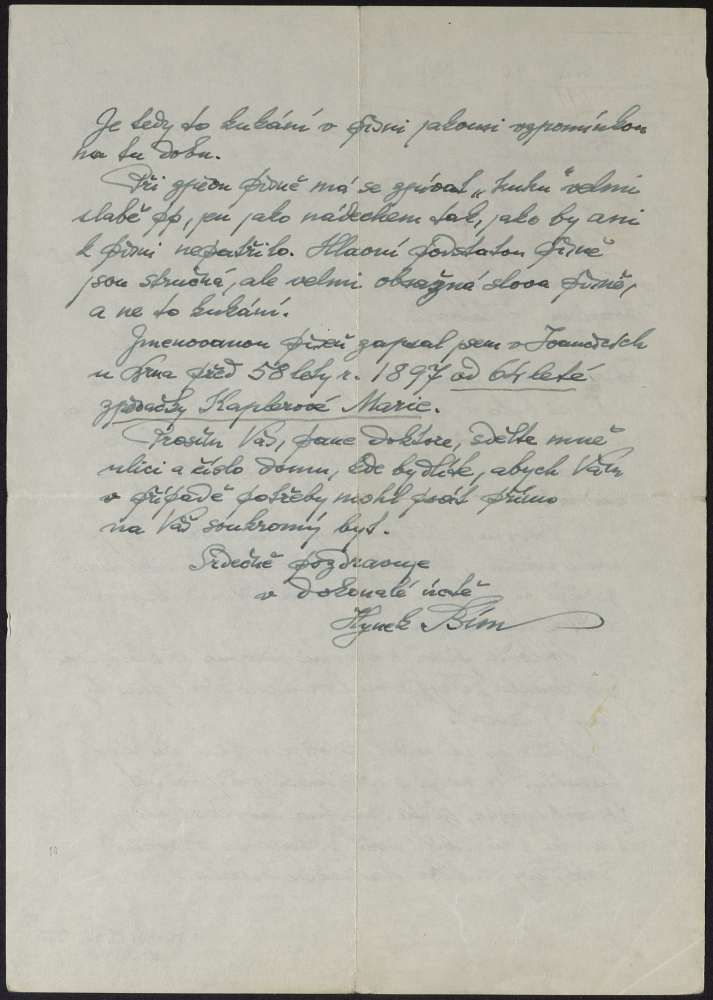 Je tedy to kukání v písni jakousi vzpomínkou
na tu dobu.
Při zpěvu písně má se zpívat „kuku" velmi
slabě pp, jen jako nádechem tak, jako by ani
k písni nepatřilo. Hlavní podstatou písně
jsou stručná, ale velmi obsažná slova písně,
a ne to kukání.
Jmenovanou píseň zapsal jsem v Ivanovicích
u Brna před 58 lety r. 1897 od 64 leté
zpěvačky Kaplerové Marie.
Prosím Vás, pane doktore, sdělte mně
ulici a číslo domu, kde bydlíte, abych Vám
v případě potřeby mohl psát přímo
na Váš soukromý byt.
Srdečně pozdravuje
v dokonalé úctě
Hynek Bím